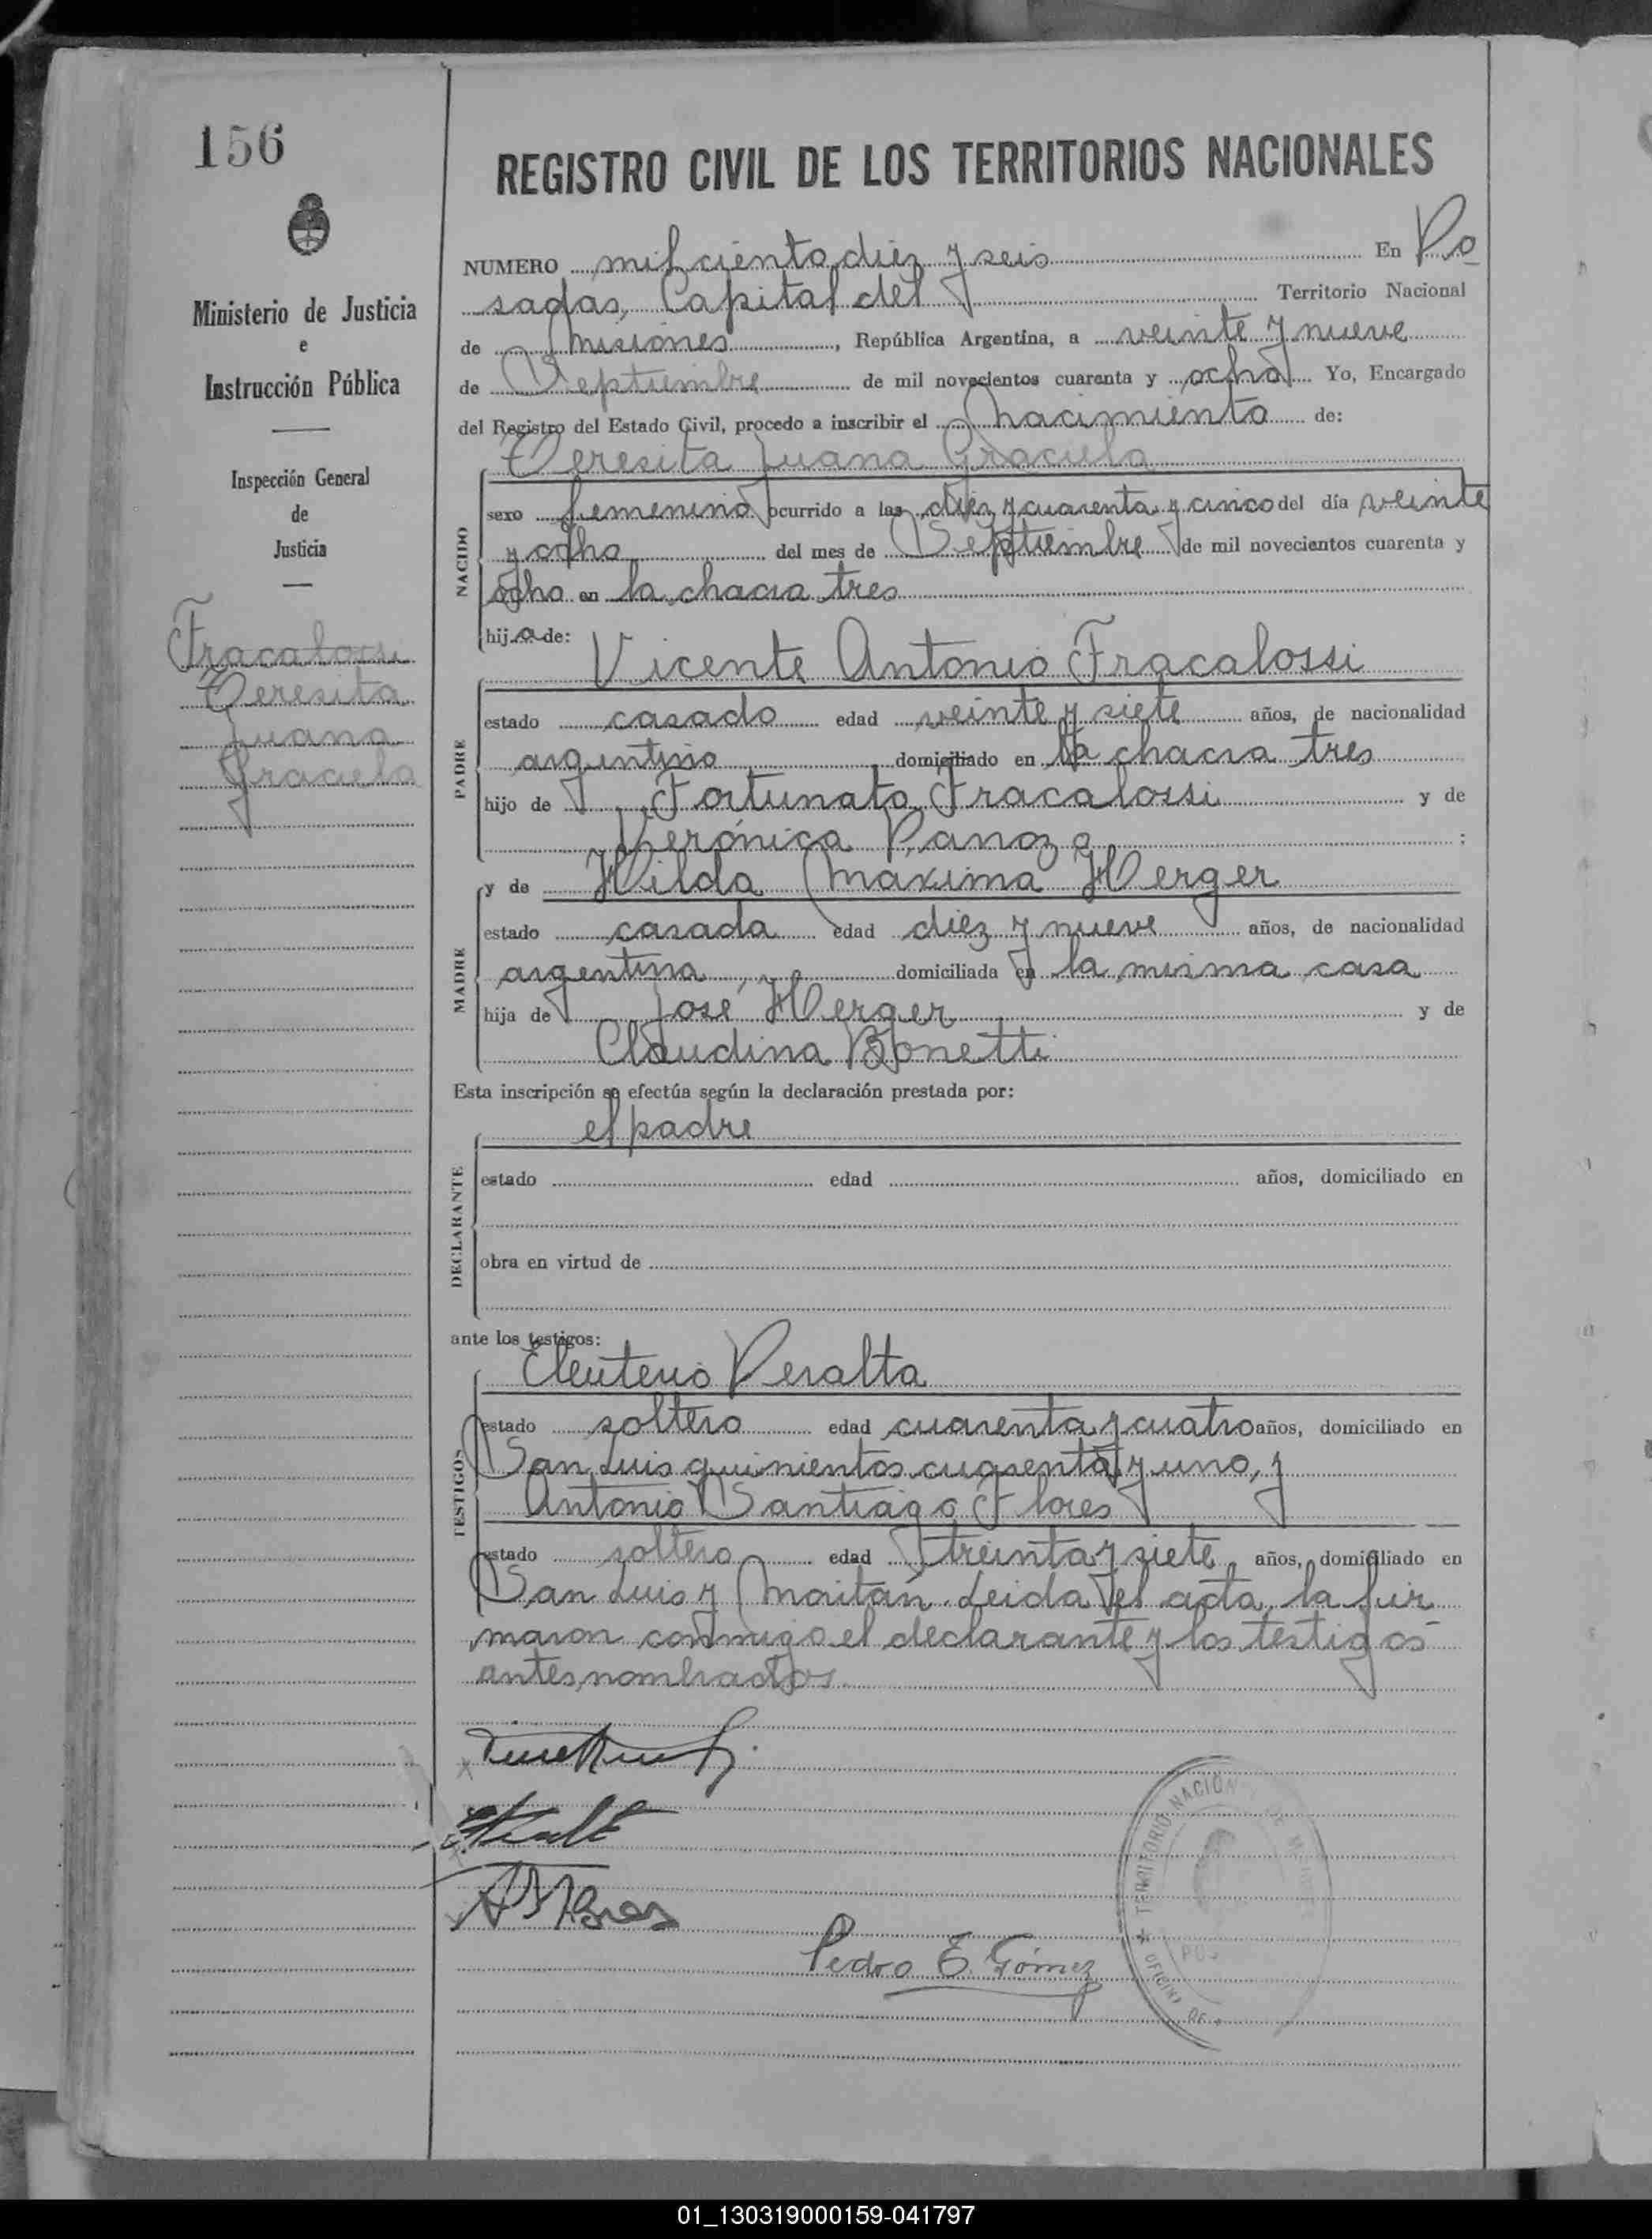 156
Ministerio de Justicia
e
Instrucción Pública
Inspección General
de
Justicia
Fracalossi
Teresita
Juana
Graciela
REGISTRO CIVIL DE LOS TERRITORIOS NACIONALES
NUMERO mil ciento diez y seis En Po
sadas, Capital del Territorio Nacional
de Misiones, República Argentina, a veinte y nueve
de Septiembre de mil novecientos cuarenta y ocho Yo, Encargado
del Registro del Estado Civil, procedo a inscribir el nacimiento de:
Teresita Juana Graciela
NACIDO
sexo femenino ocurrido a las diez y cuarenta y cinco del día veinte
y ocho del mes de Septiembre de mil novecientos cuarenta y
ocho en la chacra tres
hija de:
Vicente Antonio Fracalossi
PADRE
estado casado edad veinte y siete años, de nacionalidad
argentino domiciliado en la chacra tres
hijo de Fortunato Fracalossi y de
Verónica Panozo;
y de Hilda Maxima Herger
MADRE
estado casada edad diez y nueve años, de nacionalidad
argentina, domiciliada en la misma casa
hija de José Herger y de
Claudina Bonetti
Esta inscripción se efectúa según la declaración prestada por:
el padre
DECLARANTE
estado edad años, domiciliado en
obra en virtud de
ante los testigos:
Eleuterio Peralta
TESTIGOS
estado soltero edad cuarenta y cuatro años, domiciliado en
San Luis quinientos cuarenta y uno, y
Antonio Santiago Flores
estado soltero edad treinta y siete años, domiciliado en
San Luis y Maitan. Leida el acta, la fir
maron conmigo el declarante y los testigos
antes nombrados.
A S Flores
Pedro E. Gómez
TERRITORIO NACION
OFICINA DE
POS
01_130319000159-041797